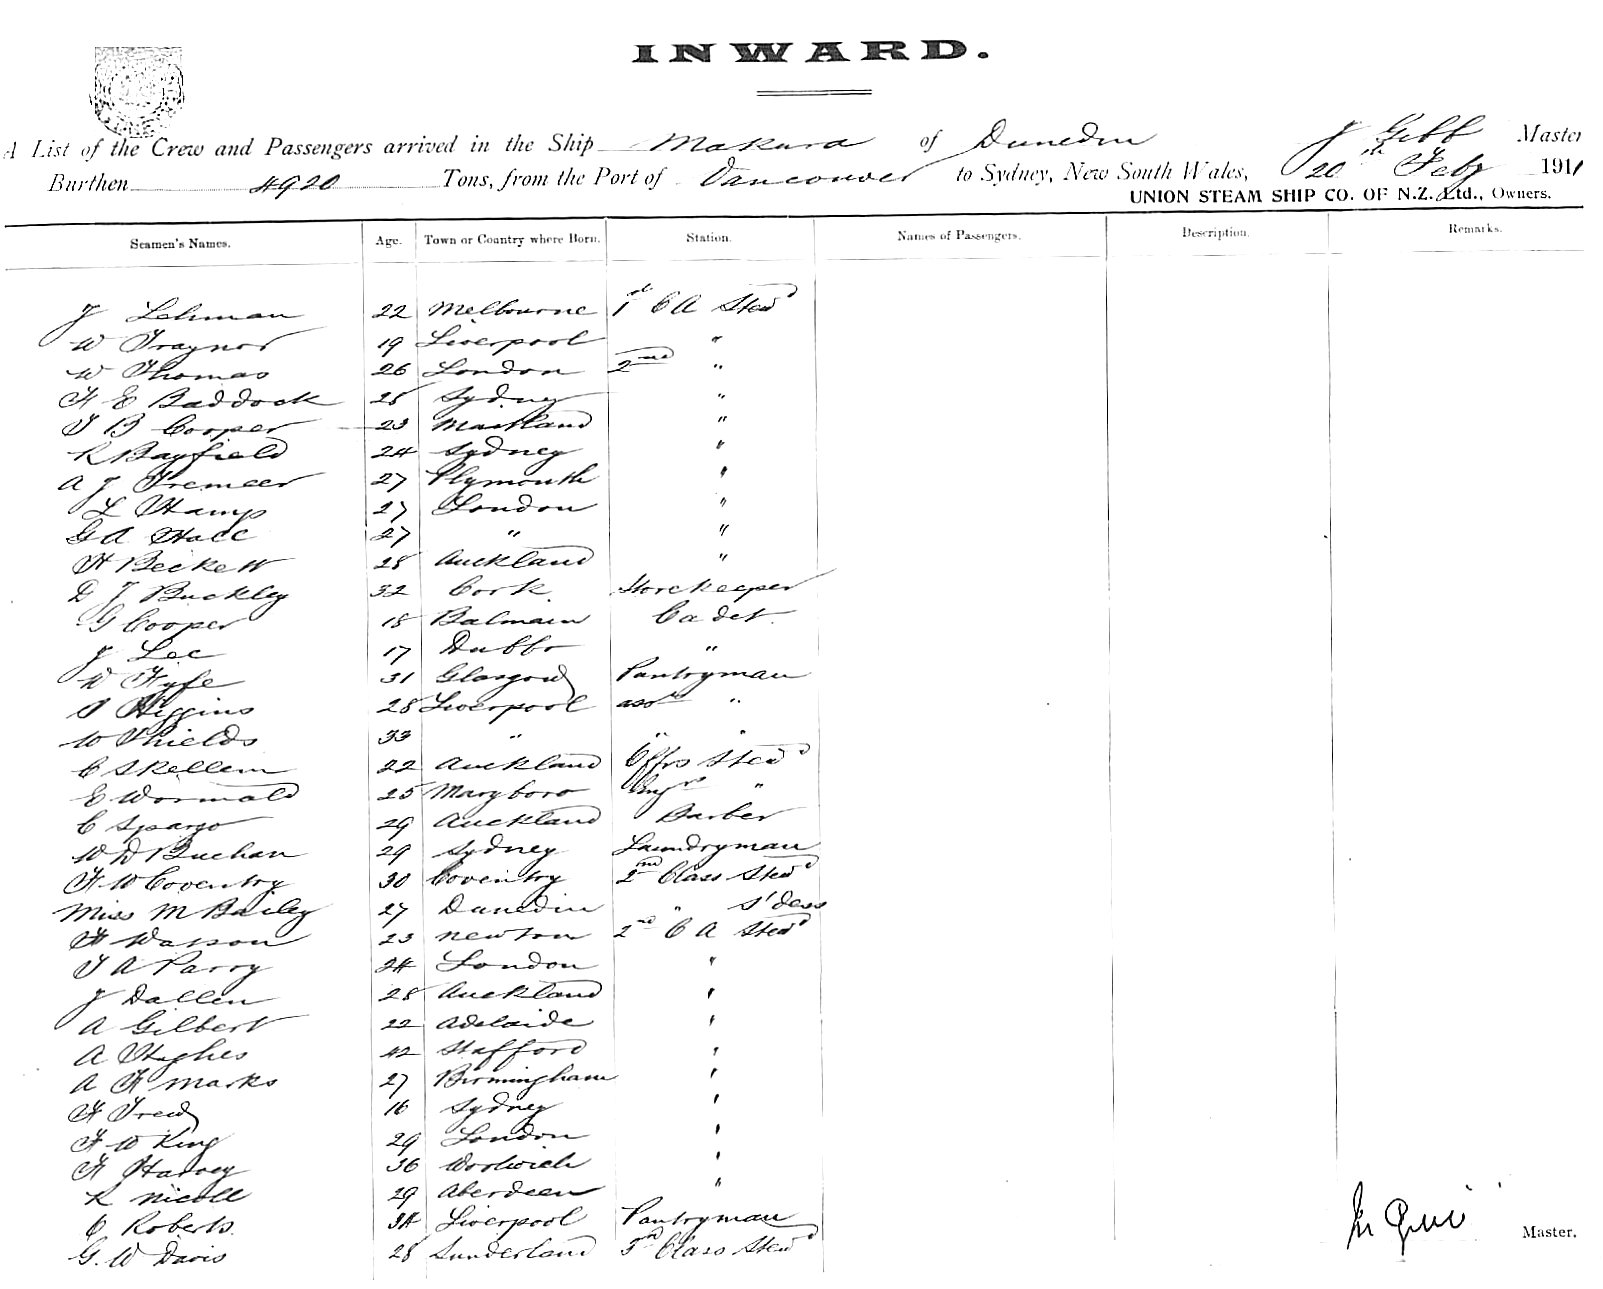 INWARD.
A List of the Crew and Passengers arrived in the Ship Makura of Dunedin J Gibb Master
Burthen 4920 Tons, from the Port of Vancouver to Sydney, New South Wales, 20th Feby 1911
UNION STEAM SHIP CO. OF N.Z. Ltd., Owners.
Seamen's Names. Age. Town or Country where Born. Station. Names of Passengers. Description. Remarks.
J Lehman 22 Melbourne 1st C A Stewd
W Traynor 19 Liverpool "
W Thomas 26 London 2nd "
H E Baddock 28 Sydney "
T B Cooper 23 Maitland "
R Bayfield 24 Sydney "
A J Tremeer 27 Plymouth "
L Hamp 27 London "
G A Hall 27 " "
H Beckett 28 Auckland "
D J Buckley 32 Cork Storekeeper
G Cooper 18 Balmain Cadet.
J Lee 17 Dubbo "
W Fyfe 31 Glasgow Pantryman
P Higgins 28 Liverpool asst "
W Shields 33 " " "
C Skellern 22 Auckland Offrs Stewd
E Wormald 25 Maryboro Engrs "
C Spargo 29 Auckland Barber
W D Buchan 29 Sydney Laundryman
H W Coventry 30 Coventry 2nd Class Stewd
Miss M Bailey 27 Dunedin " S'dess
H Watson 23 Newton 2nd C A Stewd
T A Parry 24 London "
J Dallen 28 Auckland "
A Gilbert 22 Adelaide "
A Hughes 42 Stafford "
A H Marks 27 Birmingham "
H Trew 16 Sydney "
H W King 29 London "
H Harvey 36 Woolwich "
R Nicoll 29 Aberdeen "
C Roberts. 34 Liverpool Pantryman
G. W Davis 28 Sunderland 3rd Class Stewd
Master.